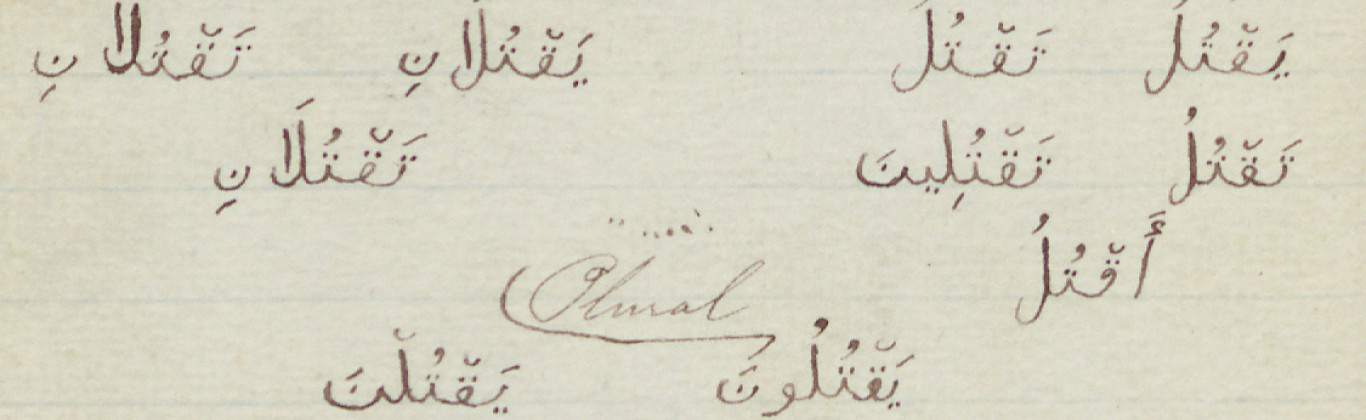 يَقْتُلُ تَقْتُلُ يَقْتُلَانِ تَقْتُلَانِ
تَقْتُلُ تَقْتُلِينَ تَقْتُلَانِ
أَقْتُلُ
Plural
يَقْتُلُونَ يَقْتُلْنَ